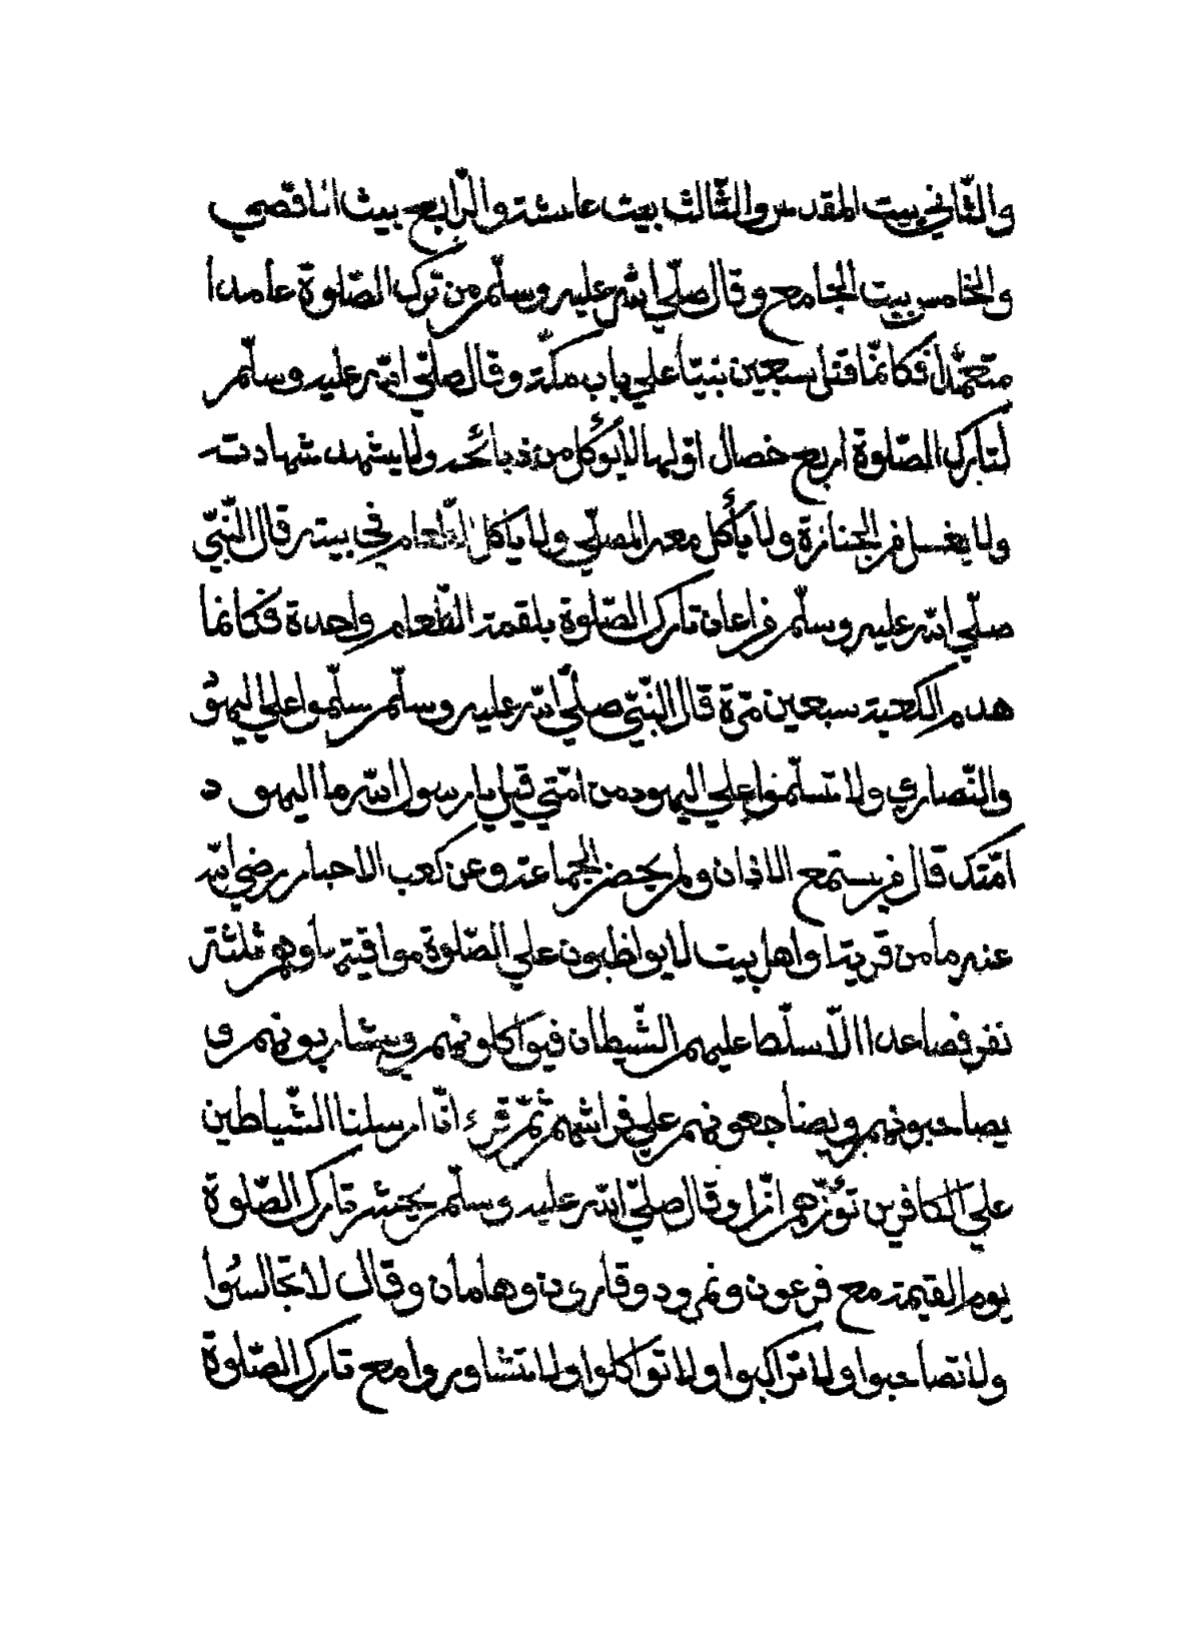 والثّاني بيت المقدس والثّالث بيت عايشة والرّابع بيت اناقصي
والخامس بيت الجامع وقال صلّي الله عليه وسلّم من ترك الصّلوة عامدا
متعمّدا فكانّما قتل سبعين نبيّا علي باب مكّة وقال صلّي الله عليه وسلّم
لتارك الصّلوة اربع خصال اوّلها لا يؤكل من ذبائحه ولا يشهد شهادته
ولا يغسل في الجنازة ولا يأكل معه المصلّي ولا ياكل الطّعام في بيته قال النّبيّ
صلّي الله عليه وسلّم من اعان تارك الصّلوة بلقمة الطّعام واحدة فكانما
هدم الكعبة سبعين مرّة قال النّبيّ صلّي الله عليه وسلّم سلّموا علي اليهُو
والنّصاري ولا تسلّموا علي اليهود من امّتي قيل يا رسول الله ما اليهو د
امّتك قال من يستمع الاذان ولم يحضر الجماعة وعن كعب الاحبار رضي الله
عنه ما من قرية او اهل بيت لا يواظبون علي الصّلوة مواقيتها وهم ثلثة
نفر فصاعدا الّا سلّط عليهم الشّيطان فيواكلونهم ويشاربونهم و
يصاحبونهم ويضاجعونهم علي فراشهم ثمّ قرء انّا ارسلنا الشّياطين
علي الكافرين تؤزّهم ازّا وقال صلّي الله عليه وسلّم يحشر تارك الصّلوة
يوم القيمة مع فرعون ونمرود وقارون وهامان وقال لا تجالسُوا
ولا تصاحبوا ولا تراكبوا ولا تواكلوا ولا تشاوروا مع تارك الصّلوة